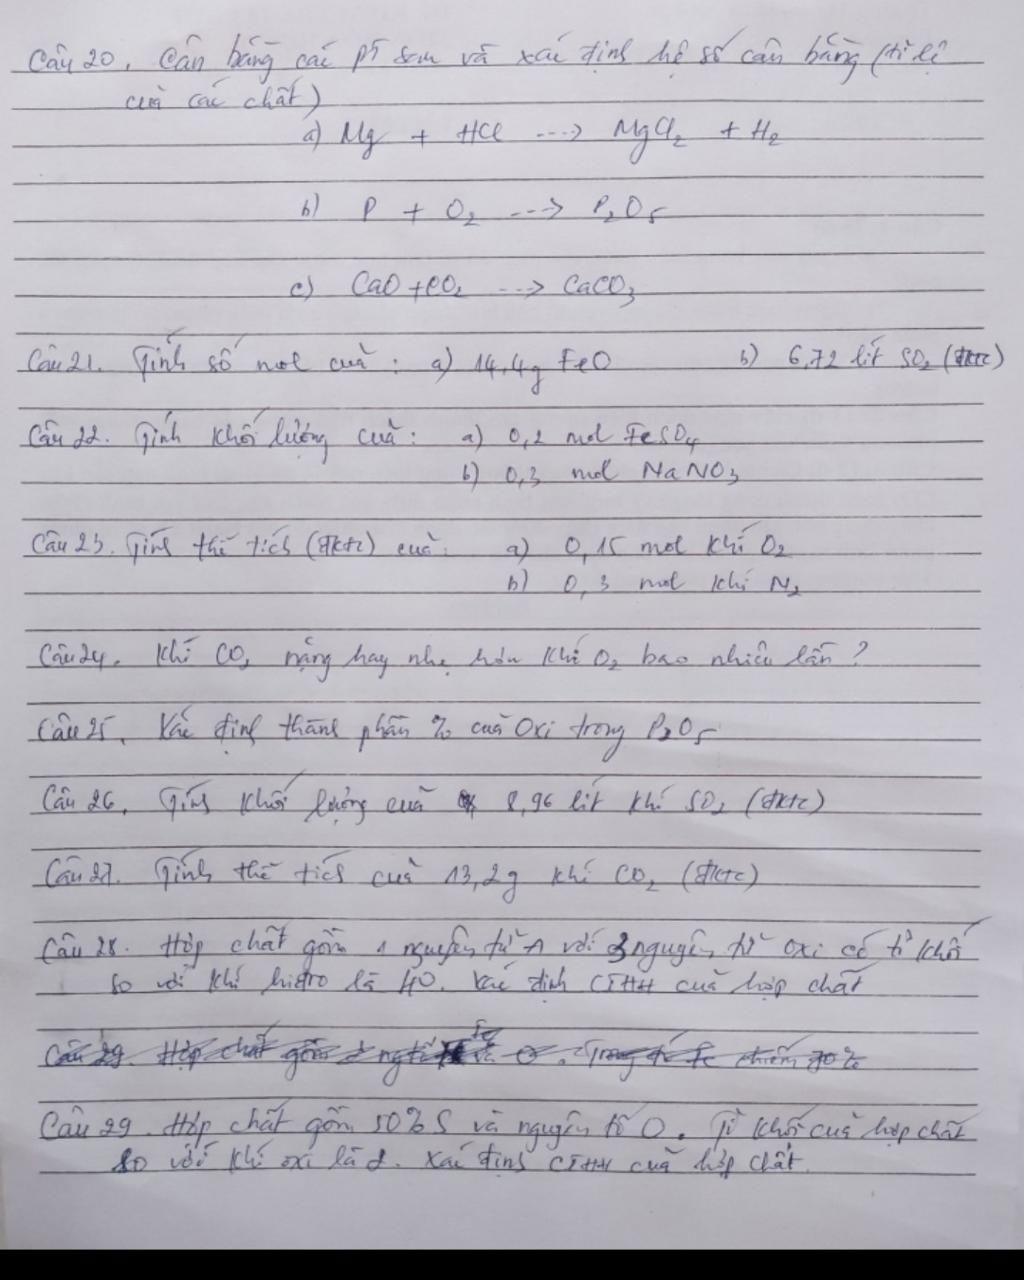 Câu 20. Cân bằng các pt sau và xác định hệ số cân bằng (tỉ lệ
của các chất)
a) Mg + HCl ---> MgCl₂ + H₂
b) P + O₂ ---> P₂O₅
c) CaO + CO₂ ---> CaCO₃
Câu 21. Tính số mol của : a) 14,4g FeO b) 6,72 lít SO₂ (đktc)
Câu 22. Tính khối lượng của : a) 0,2 mol FeSO₄
b) 0,3 mol NaNO₃
Câu 23. Tính thể tích (đktc) của : a) 0,15 mol khí O₂
b) 0,3 mol khí N₂
Câu 24. Khí CO₂ nặng hay nhẹ hơn khí O₂ bao nhiêu lần ?
Câu 25. Xác định thành phần % của Oxi trong P₂O₅
Câu 26. Tính khối lượng của 8,96 lít khí SO₂ (đktc)
Câu 27. Tính thể tích của 13,2g khí CO₂ (đktc)
Câu 28. Hợp chất gồm 1 nguyên tử A với 3 nguyên tử oxi có tỉ khối
so với khí hiđro là 40. Xác định CTHH của hợp chất
Câu 29. Hợp chất gồm Fe và O. Trong đó Fe chiếm 70%
Câu 29. Hợp chất gồm 50% S và nguyên tố O. Tỉ khối của hợp chất
so với khí oxi là 2. Xác định CTHH của hợp chất.